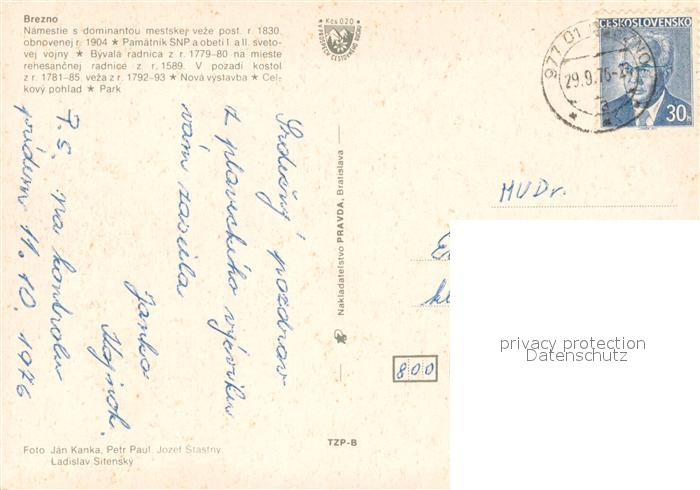 Brezno
Námestie s dominantou mestskej veže post. r. 1830,
obnovenej r. 1904 ★ Pamätník SNP a obetí I. a II. sveto-
vej vojny ★ Bývalá radnica z r. 1779-80 na mieste
rehesančnej radnice z r. 1589. V pozadí kostol
z r. 1781-85, veža z r. 1792-93 ★ Nová výstavba ★ Cel-
kový pohľad ★ Park
Kčs 0,20
ČESKOSLOVENSKO
30h
977 01 BREZNO
29.9.76-2
Srdečný pozdrav
z plaveckého výcviku
vám zasiela
Janka
P.S. na kontrolu
prídem 11. 10. 1976
Nakladateľstvo PRAVDA, Bratislava
MUDr.
800
TZP-B
Foto Ján Kanka, Petr Paul, Jozef Šťastný,
Ladislav Sitenský
privacy protection
Datenschutz